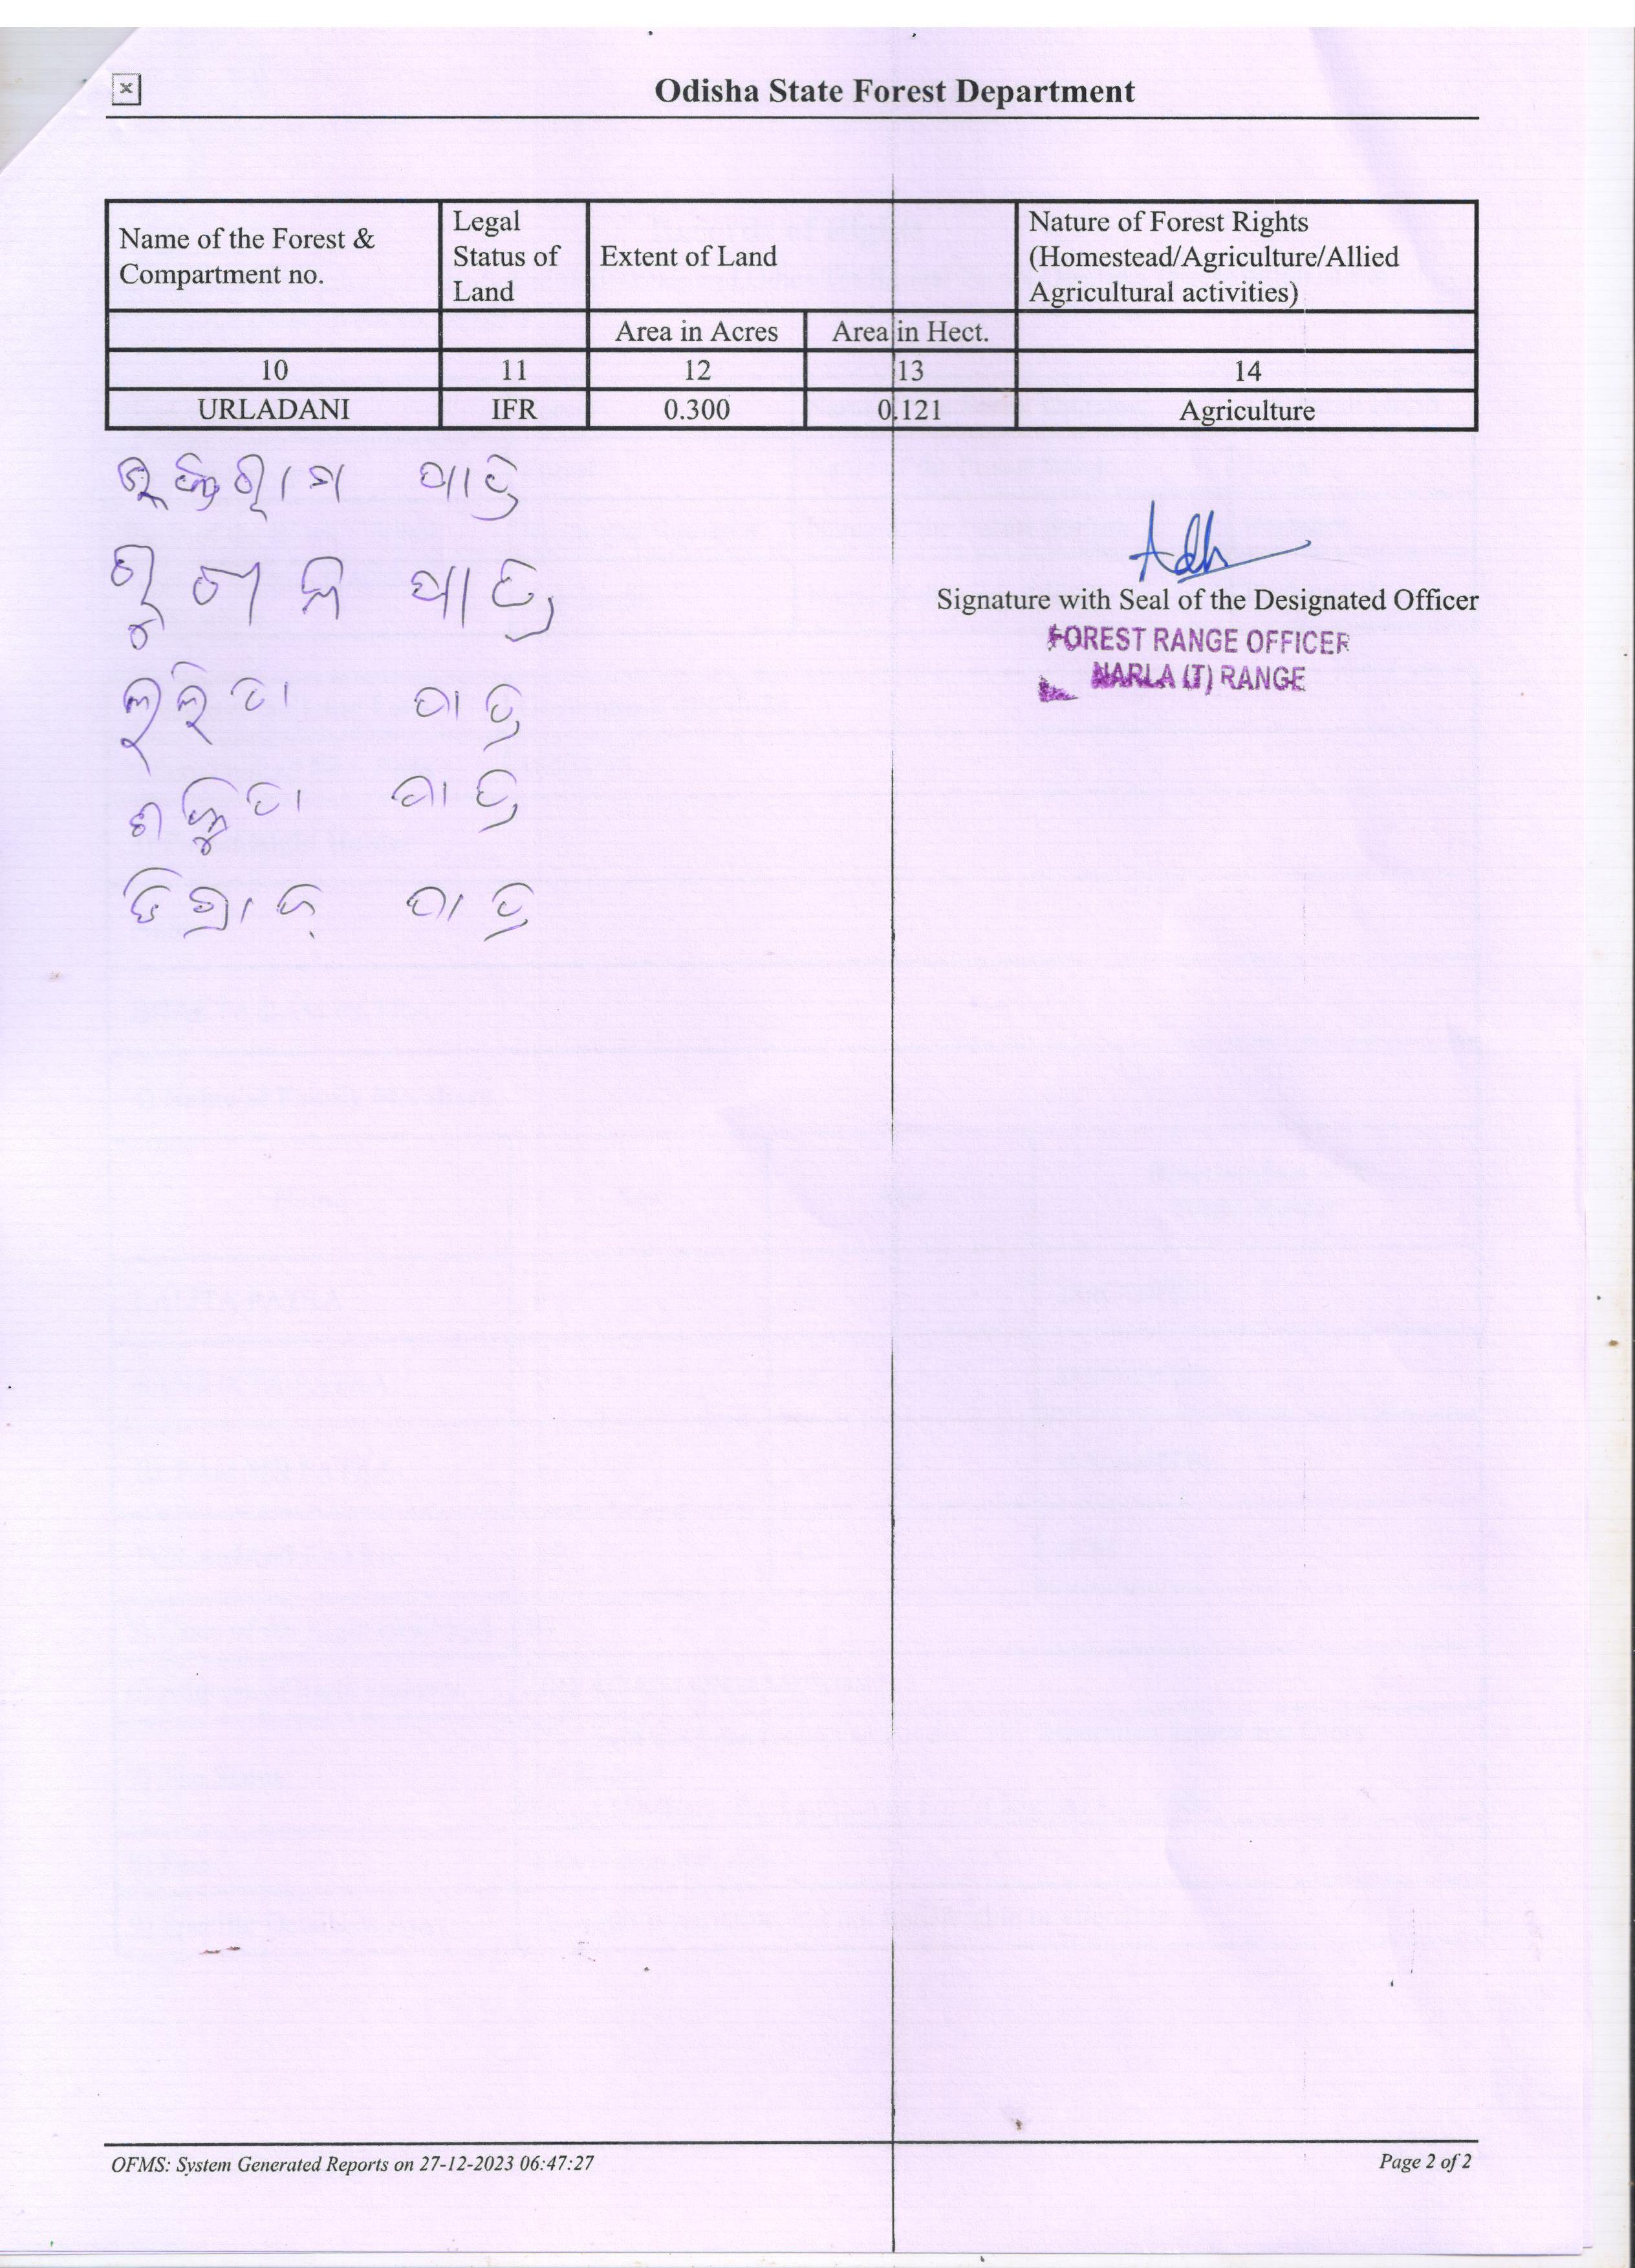 Odisha State Forest Department
Name of the Forest & Compartment no.
Legal Status of Land
Extent of Land
Nature of Forest Rights (Homestead/Agriculture/Allied Agricultural activities)
Area in Acres Area in Hect.
10 11 12 13 14
URLADANI IFR 0.300 0.121 Agriculture
ପାତ୍ର
ପାତ୍ର
ଲଳିତା ପାତ୍ର
ପାତ୍ର
ପାତ୍ର
Signature with Seal of the Designated Officer
FOREST RANGE OFFICER
NARLA (T) RANGE
OFMS: System Generated Reports on 27-12-2023 06:47:27
Page 2 of 2